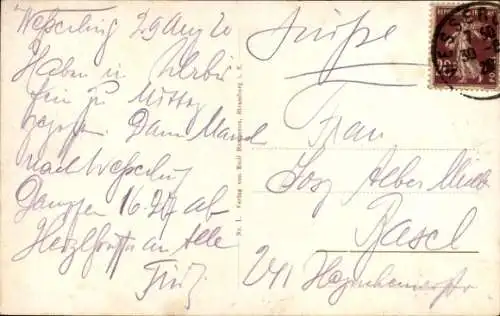 Wesserling 29 Aug 20
Haben in Urbis
fein zu Mittag
gegessen. Dann Marsch
nach Wesserling
16.27 ab
Herzl Grüße an Alle
Fritz
Suisse
Frau
Basel
241
Nr. 1. Verlag von Emil Strassburg i. E.